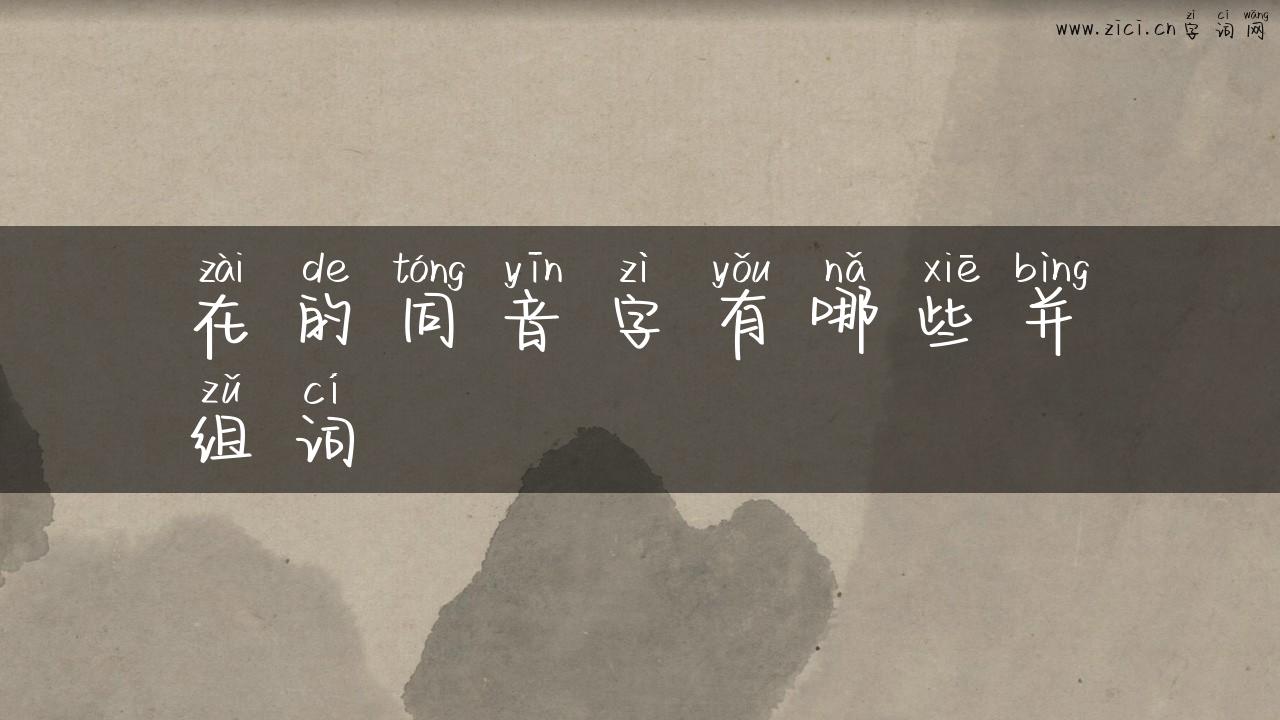 zì cí wǎng
www.zici.cn 字词网
zài de tóng yīn zì yǒu nǎ xiē bìng
在的同音字有哪些并
zǔ cí
组词